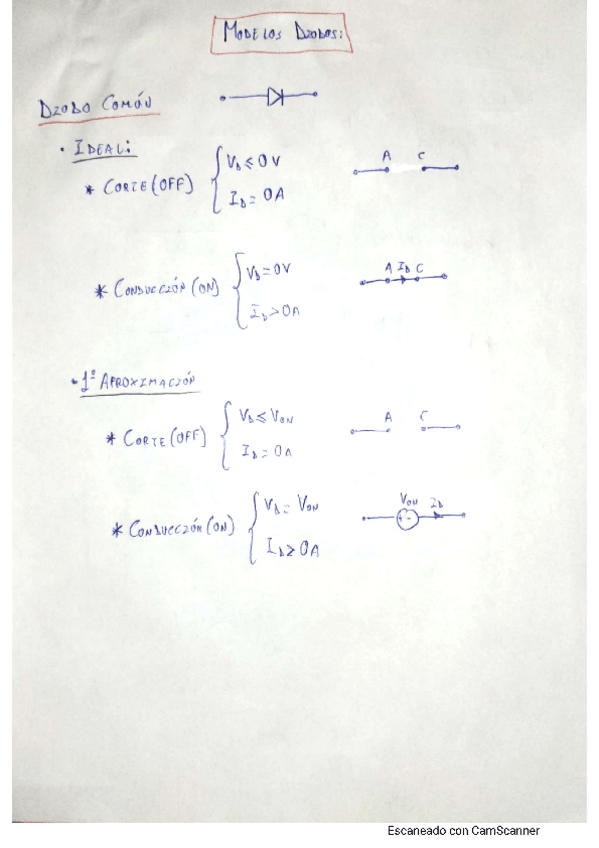 MODELOS DIODOS:
DIODO COMÚN
• IDEAL:
* CORTE (OFF) { VD ≤ 0V
ID = 0A
A C
* CONDUCCIÓN (ON) { VD = 0V
ID > 0A
A ID C
• 1º APROXIMACIÓN
* CORTE (OFF) { VD ≤ VON
ID = 0A
A C
* CONDUCCIÓN (ON) { VD = VON
ID ≥ 0A
VON ID
+ -
Escaneado con CamScanner